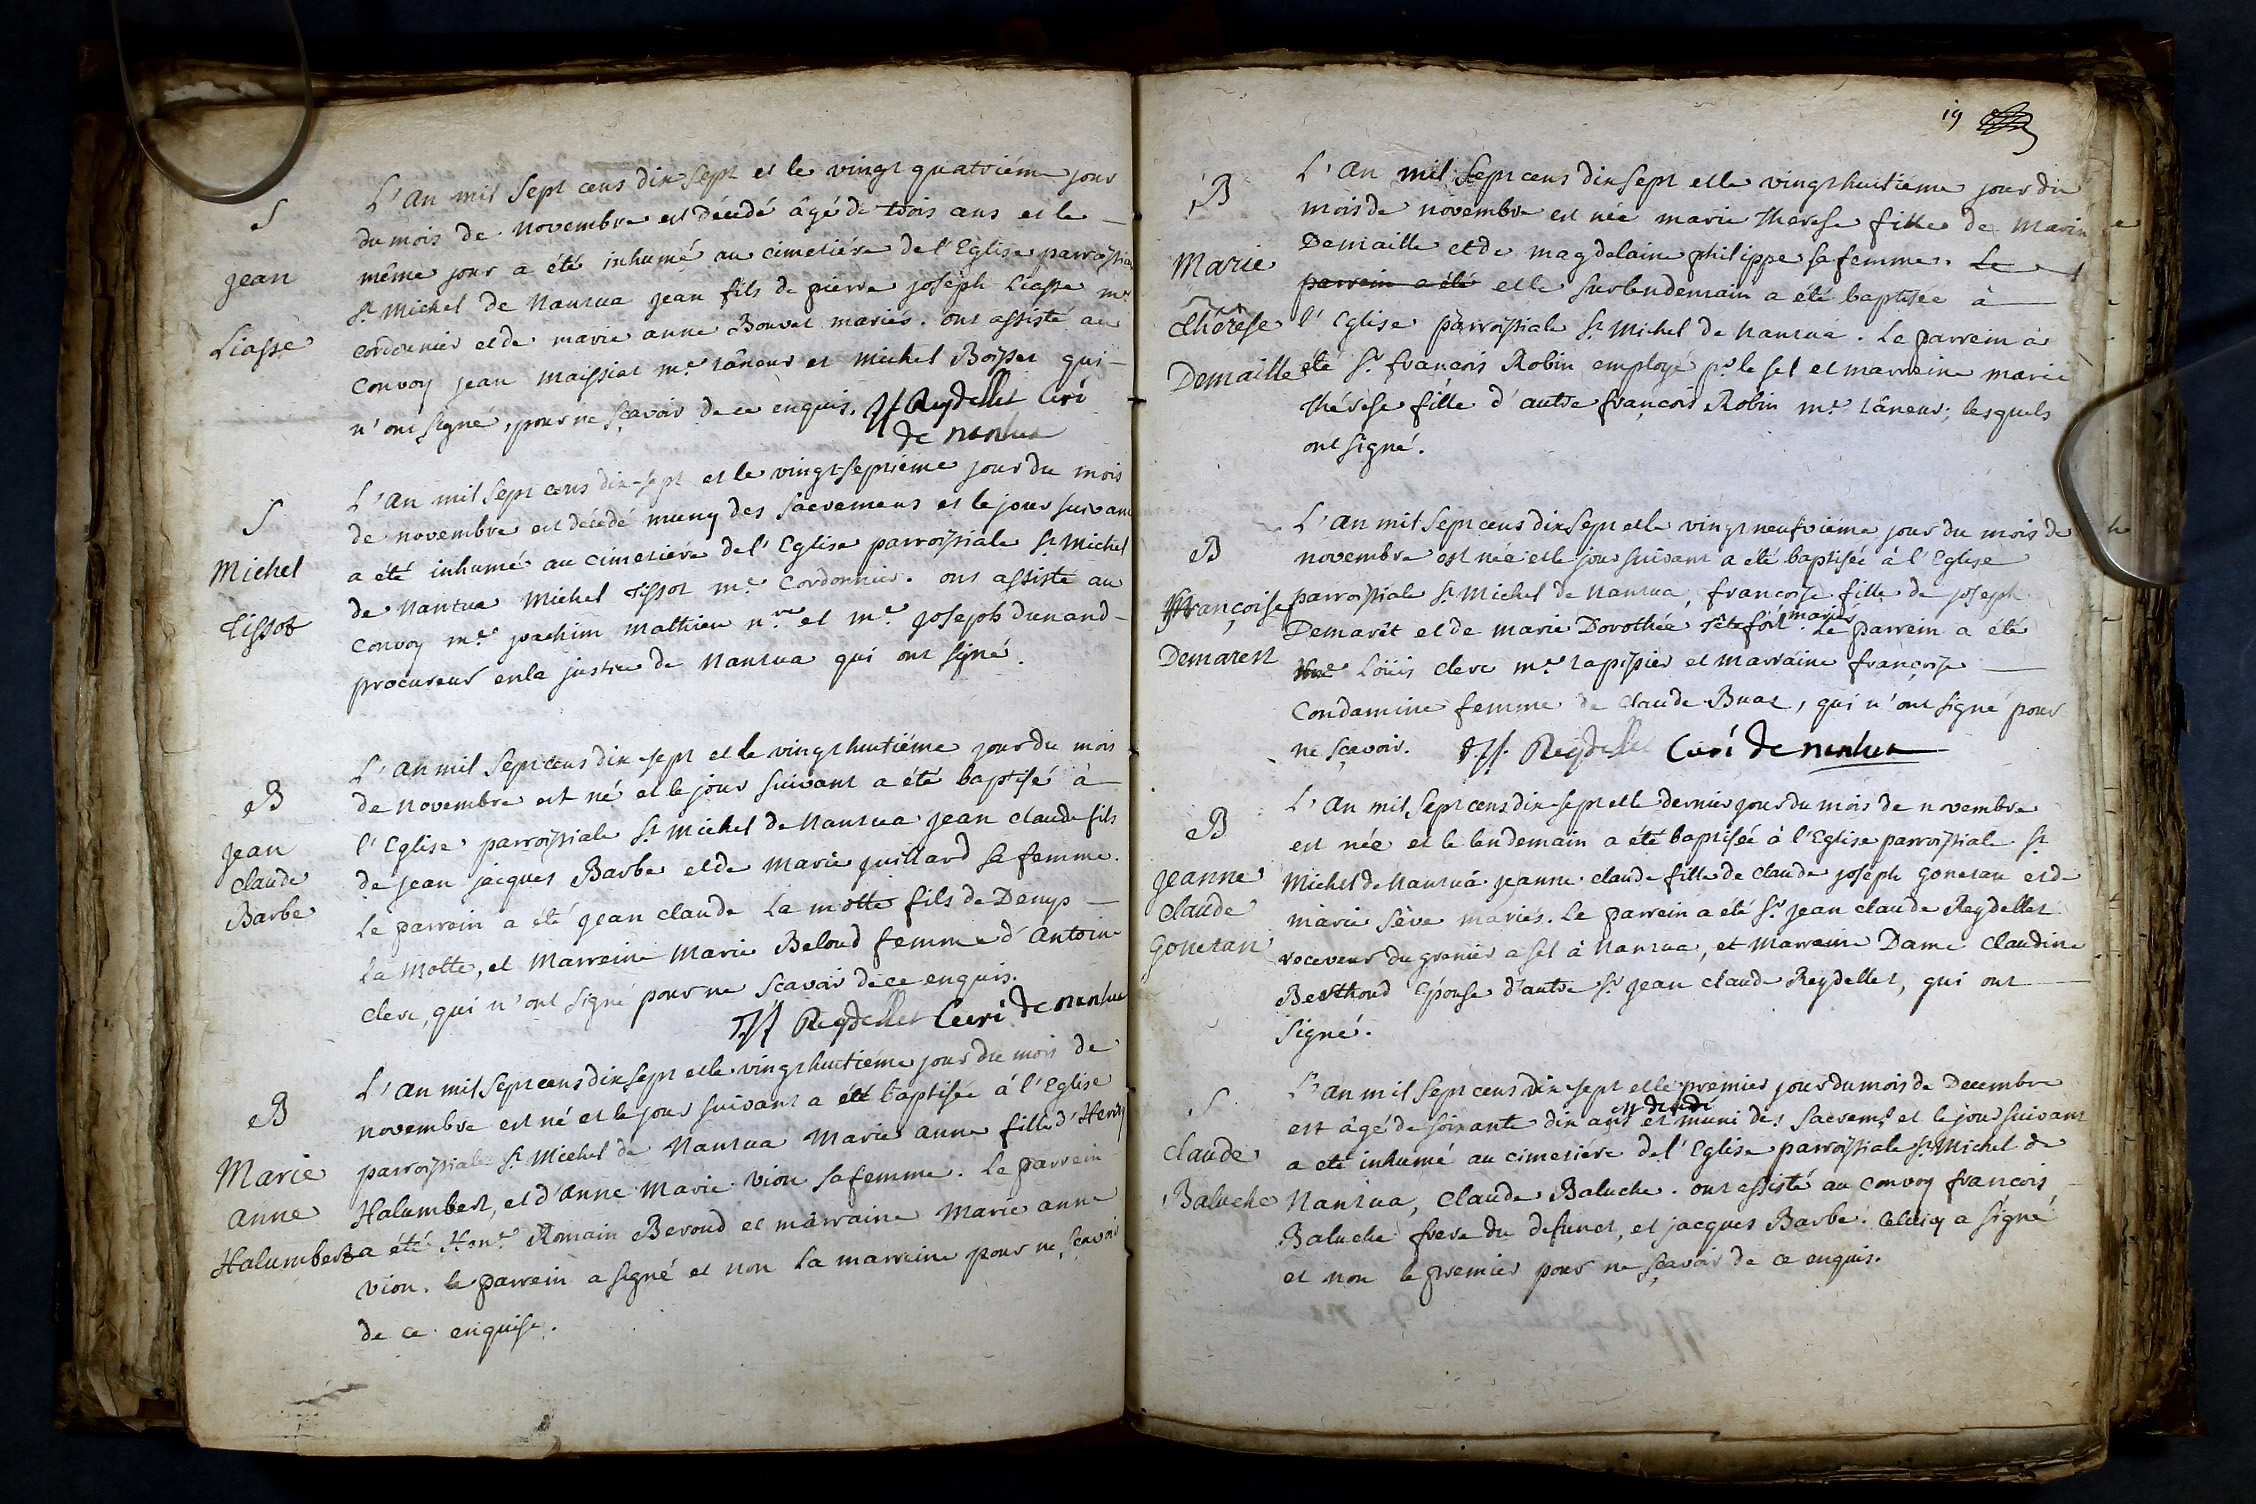 S
Jean
Liasse
L'an mil sept cens dix sept et le vingt quatriéme jour
du mois de novembre est décedé âgé de trois ans et le
même jour a été inhumé au cimetiére de l'Eglise parroissiale
St. Michel de Nantua jean fils de pierre joseph Liasse me.
cordonnier et de marie anne Bouvet mariés. ont assisté au
convoy jean maissiat me. tâneur et michel Boisset qui
n'ont signé, pour ne sçavoir de ce enquis. Reydellet Curé
de nantua
S
Michel
Tissot
L'an mil sept cens dix-sept et le vingt-septiéme jour du mois
de novembre est décedé muny des Sacremens et le jour suivant
a été inhumé au cimetiére de l'Eglise parroissiale St. Michel
de Nantua Michel Tissot me. Cordonnier. ont assisté au
convoy me. joachim mathieu nre. et me. joseph Dunand
procureur en la justice de Nantua qui ont signé.
B
jean
claude
Barbe
L'an mil sept cens dix sept et le vingt huitiéme jour du mois
de novembre est né et le jour suivant a été baptisé à
l'Eglise parroissiale St. Michel de Nantua jean claude fils
de jean jacques Barbe et de marie juillard sa femme.
Le parrein a été jean claude La motte fils de Denys
la Motte, et Marreine Marie Beloud femme d'Antoine
clerc, qui n'ont signé pour ne Scavoir de ce enquis.
Reydellet Curé de nantua
B
Marie
Anne
Halumbert
L'an mil sept cens dix sept et le vingt huitiéme jour du mois de
novembre est né et le jour suivant a été baptisée à l'Eglise
parroissiale St. Michel de Nantua Marie Anne fille d'Henry
Halumbert, et d'Anne Marie vion sa femme. Le parrein
a été Honê. Romain Beroud et märraine Marie anne
vion. le parrein a signé et non la marreine pour ne sçavoir
de ce enquise.
19
B
Marie
Thérese
Demaille
L'an mil sept cens dix sept et le vingt huitiéme jour du
mois de novembre est née marie Therese fille de Marin
Demaille et de magdelaine philippe sa femme. Le
parrein a été et le surlendemain a été baptisée à
l'Eglise parroissiale St. Michel de Nantua. Le parrein a
été Sr. françois Robin employé pr. le sel et marreine marie
Thérese fille d'autre françois Robin me. tâneur; lesquels
ont signé.
B
françoise
Demarest
L'an mil sept cens dix sept et le vingt neufviéme jour du mois de
novembre est née et le jour suivant a été baptisée à l'Eglise
parroissiale St. Michel de Nantua, françoise fille de joseph
Demarêt et de marie Dorothée Têtefort mariés. Le parrein a été
Loüis clerc me. tapissier et marraine françoise
Condamine femme de claude Buat, qui n'ont signé pour
ne sçavoir. Reydellet Curé de nantua
B
jeanne
claude
gonetan
L'an mil sept cens dix-sept et le dernier jour du mois de novembre
est née et le lendemain a été baptisée à l'Eglise parroissiale St.
Michel de Nantua jeanne claude fille de claude joseph gonetan et de
marie sève mariés. Le parrein a été Sr. jean claude Reydellet
receveur du grenier a sel à Nantua, et Marreine Dame Claudine
Berthoud Epouse d'autre Sr. jean claude Reydellet, qui ont
signé.
S
claude
Baluche
L'an mil sept cens dix sept et le premier jour du mois de Decembre
est âgé de soixante dix ans est decedé et muni des sacremts. et le jour suivant
a eté inhumé au cimetiére de l'Eglise parroissiale St. Michel de
Nantua, Claude Baluche. ont assisté au convoy françois
Baluche frere du defunct, et jacques Barbe. celuicy a signé
et non le premier pour ne sçavoir de ce enquis.